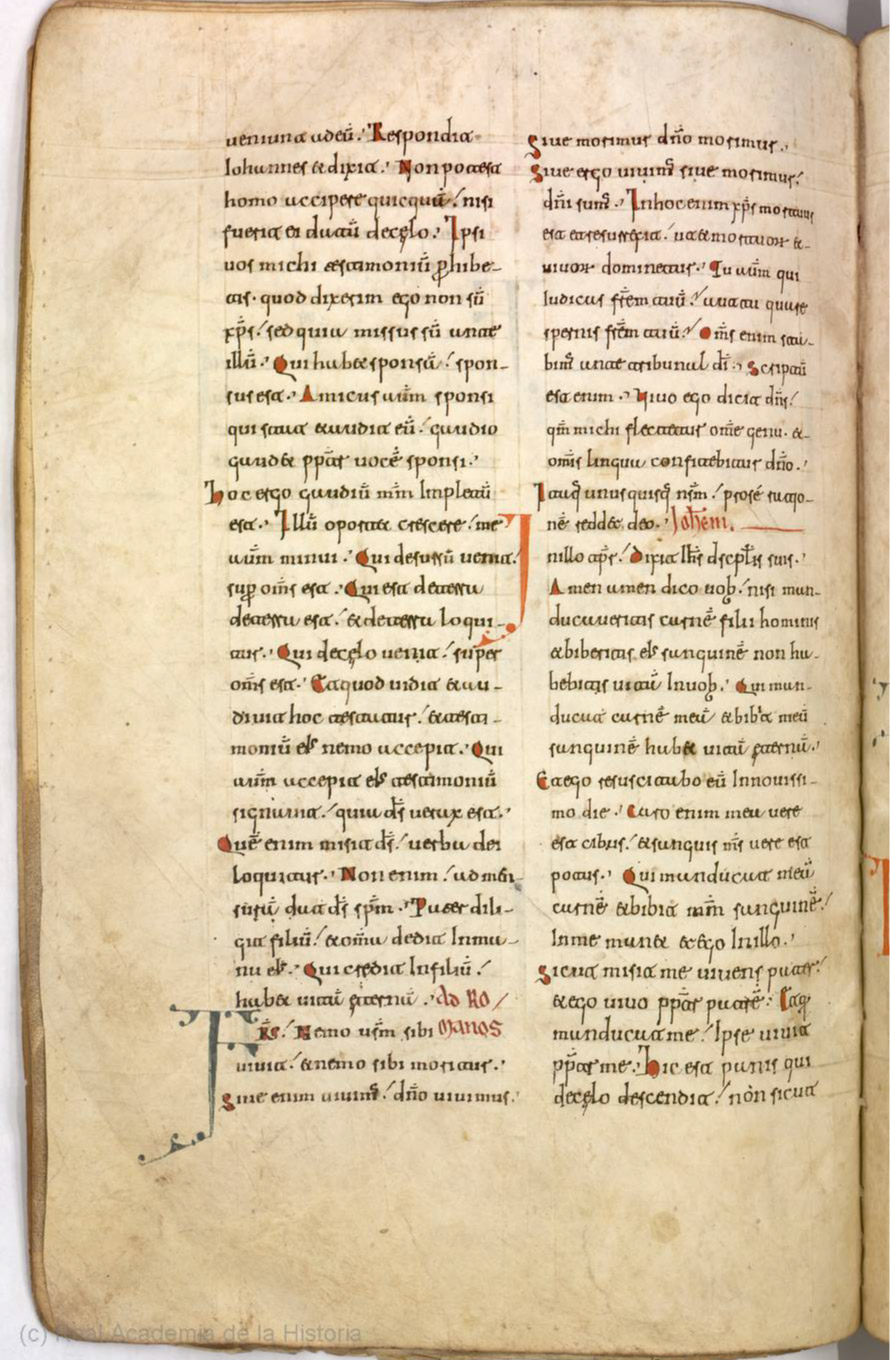 ueniunt adeū. Respondit
Iohannes & dixit. Non potest
homo accipere quicquā. nisi
fuerit ei datū decęlo. Ipsi
uos michi testimoniū p̄hibe-
tis. quod dixerim ego non sū
xp̄s. sed quia missus sū ante
illū. Qui hab& sponsā. spon-
sus est. Amicus aūm sponsi
qui stat & audit eū. gaudio
gaud& pp̄ter uocē sponsi.
hoc ergo gaudiū mm̄ Impletū
est. Illū oport& crescere. me
aūm minui. Qui desursū uenit.
sup̄ om̄s est. Qui est de terra
de terra est. & de terra loqui-
tur. Qui decęlo uenit. super
om̄s est. Et quod uidit & au-
diuit hoc testatur. & testi-
moniū eĪs nemo accepit. Qui
aūm accepit eĪs testimoniū
signauit. quia dS̄ uerax est.
Quē enim misit dS̄. uerba dei
loquitur. Non enim. ad m&n-
surā dat dS̄ spm̄. Pater dili-
git filiū. & om̄a dedit Inma-
nu eĪs. Qui credit Infiliū.
hab& uitā ęternā. Ad Ro/
FRS. Nemo usm̄ sibi manos
uiuit. & nemo sibi moritur.
Siue enim uiuimꝰ. dn̄o uiuimus.
Siue morimur dn̄o morimur.
Siue ergo uiuimꝰ siue morimur.
dn̄i sumꝰ. Inhoc enim xp̄s mortuus
est et resurrexit. ut & mortuorꝝ &
uiuorꝝ dominetur. Tu aūm qui
Iudicas fr̄em tuū. aut tu quare
spernis fr̄em tuū. Om̄s enim sta-
bimꝰ ante tribunal dī. Scriptū
est enim. Viuo ego dicit dn̄s.
qm̄ michi flectetur om̄e genu. &
om̄is lingua confitebitur dn̄o.
Itaq̄ unusquisq̄ nr̄m. prosé ratio-
nē redd& deo. Ioh̄em.
Inillo tp̄r. Dixit Ih̄s dscpl̄is suis.
Amen amen dico uob̄. nisi man-
ducaueritis carnē filii hominis
& biberitis eĪs sanguinē non ha-
bebitis uitā Inuob̄. Qui man-
ducat carnē meā & bibit meū
sanguinē hab& uitā ęternā.
Et ego resuscitabo eū Innouissi-
mo die. Caro enim mea uere
est cibus. & sanguis mS̄ uere est
potus. Qui manducat meā
carnē & bibit mm̄ sanguinē.
Inme man& & ego Inillo.
Sicut misit me uiuens pater.
& ego uiuo pp̄ter patrē. Et q̄
manducat me. Ipse uiuit
pp̄ter me. hic est panis qui
decęlo descendit. nòn sicut
(c) Real Academia de la Historia